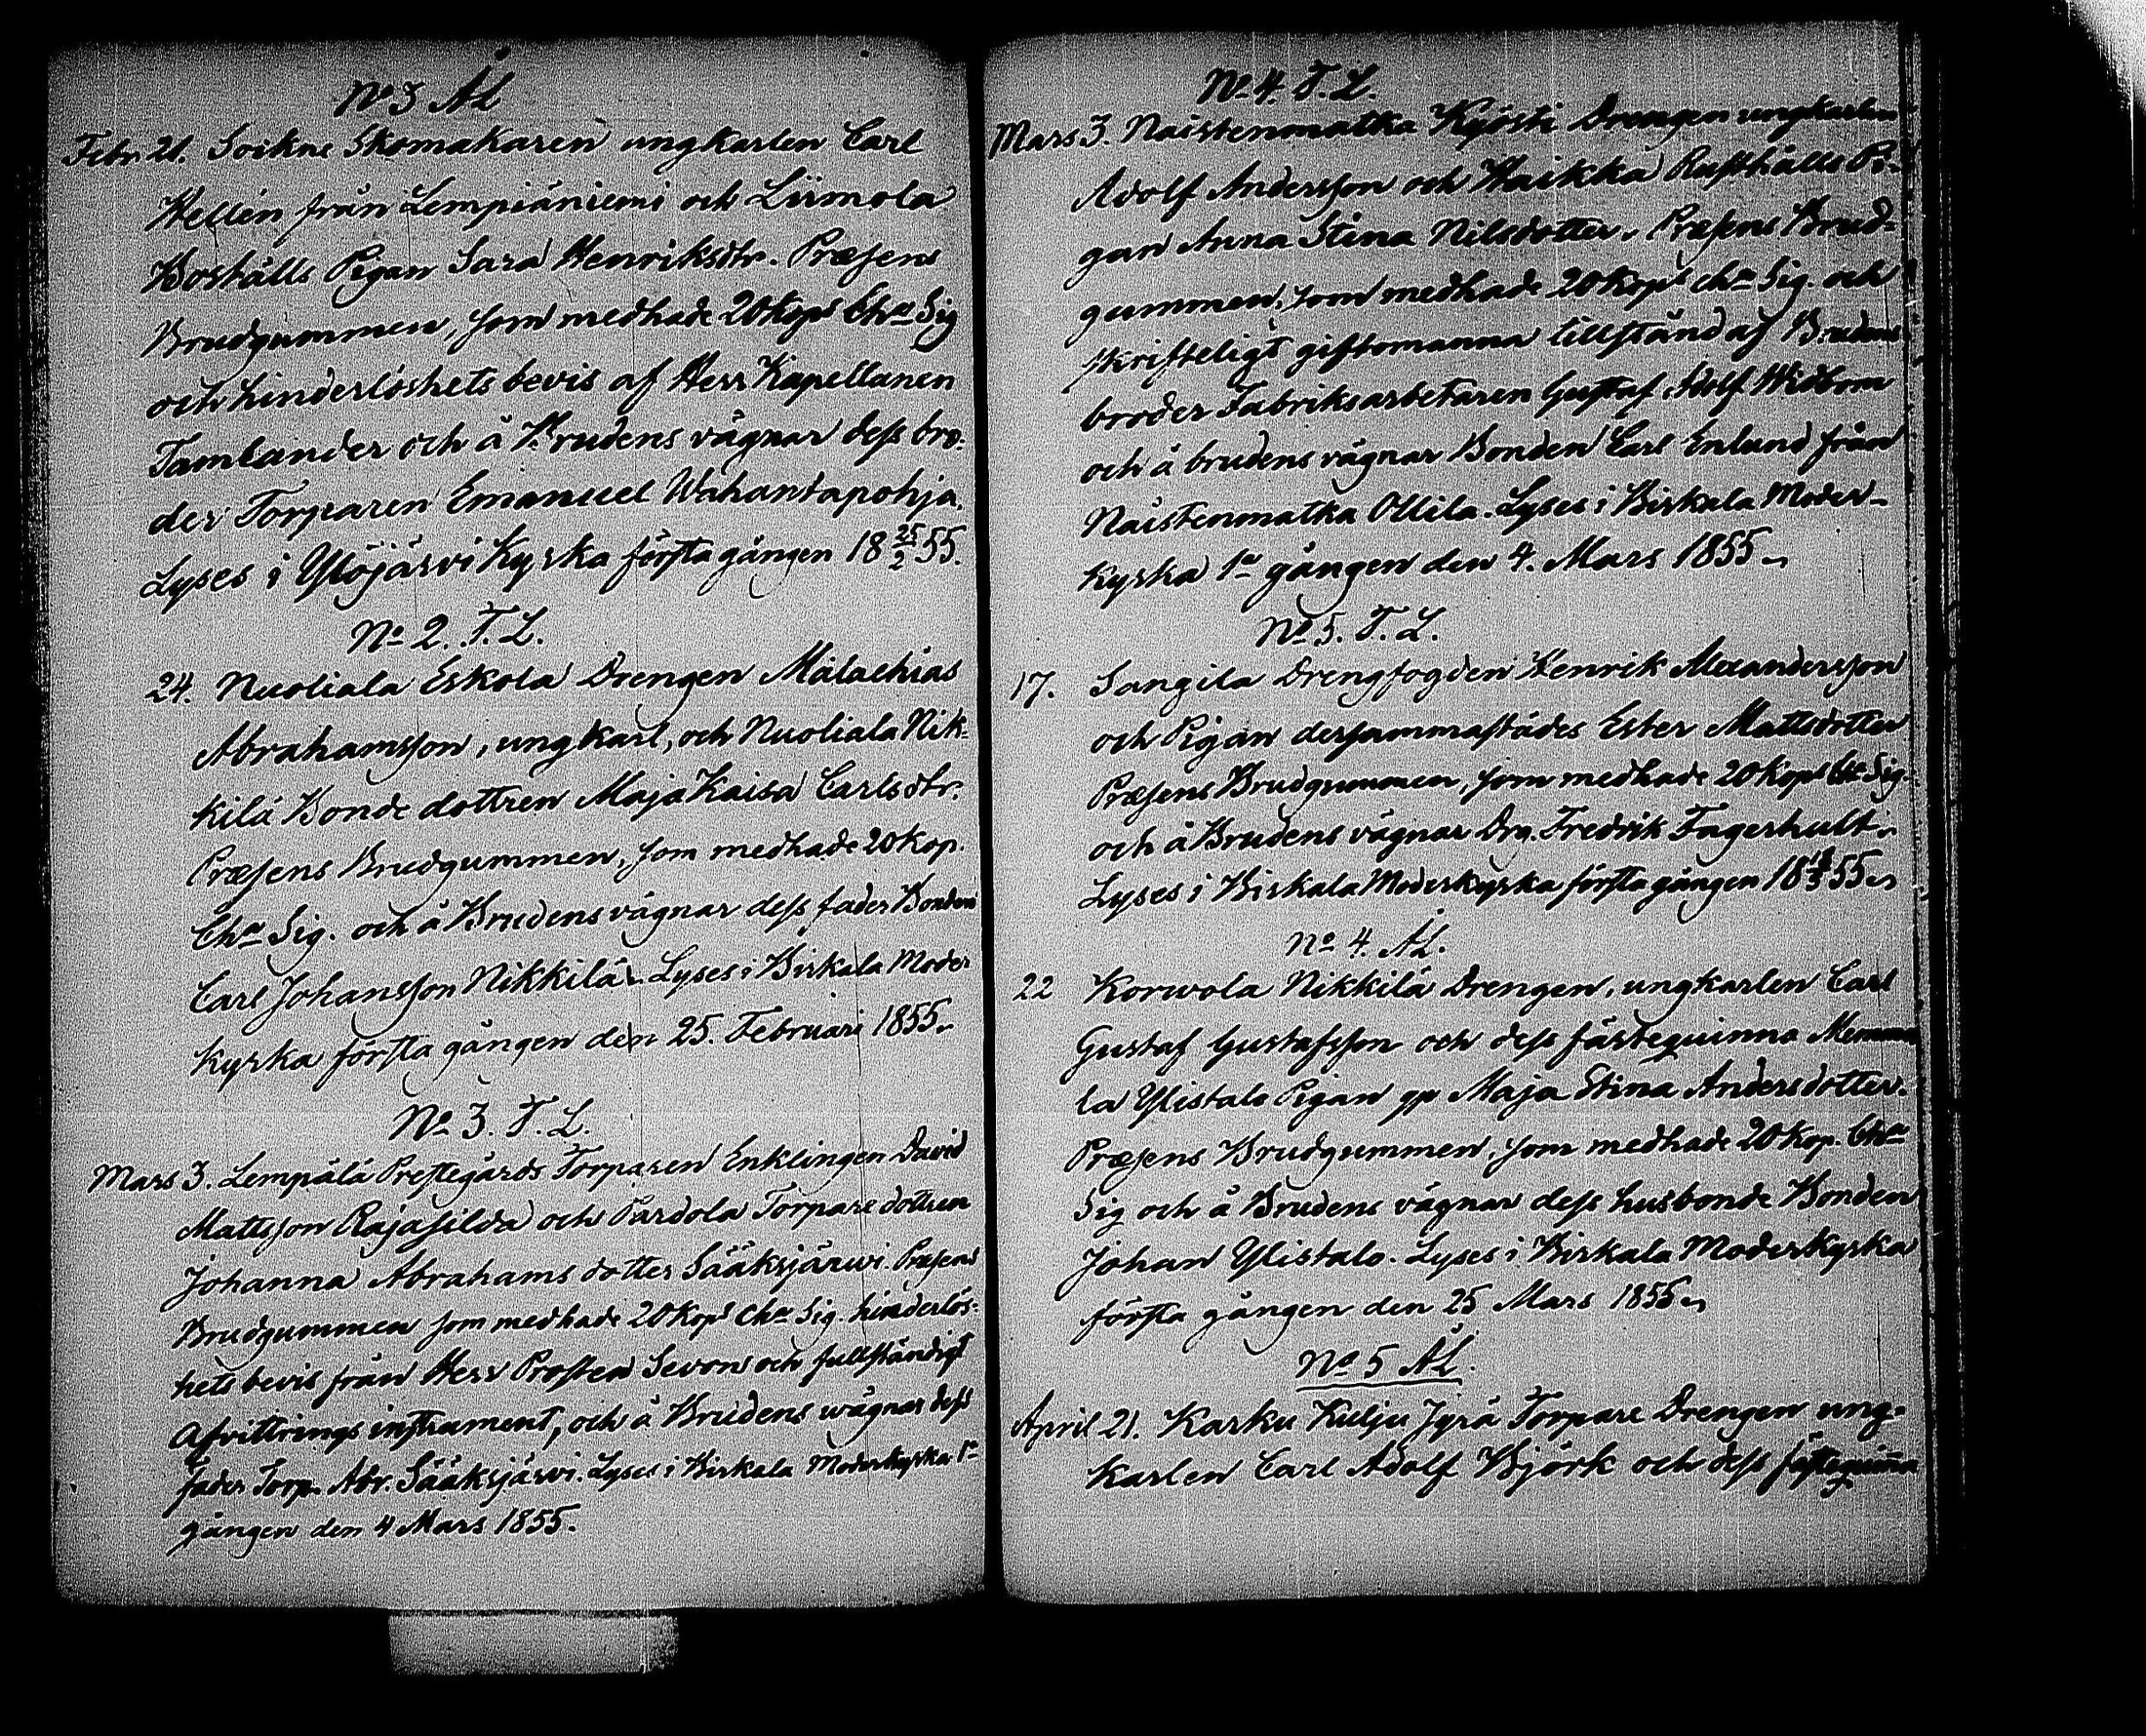 No 3 ÅL
Febr. 21. Sockne Skomakaren ungkarlen Carl
Hellén från Lempiäniemi och Liimola
Boshålls Pigan Sara Henriksdtr. Præsens
Brudgummen, som medhade 20 Kops Cha Sig
och hinderlöshets bevis af Herr Kapellanen
Tamlander och å Brudens vägnar dess bro-
der Torparen Emanuel Wahantapohja.
Lyses i Ylöjärvi Kyrka första gången 18 25/2 55.
No 2. T. L.
24. Nuoliala Eskola Drengen Malachias
Abrahamsson, ungkarl, och Nuoliala Nik-
kilä Bonde dottren Maja Kaisa Carlsdtr.
Præsens Brudgummen, som medhade 20 Kop.
Cha Sig. och å Brudens vägnar dess fader Bonden
Carl Johansson Nikkilä. Lyses i Birkala Moder
kyrka första gången den 25. Februari 1855.
No 3. T. L.
Mars 3. Lempälä Prestegårds Torparen Enklingen David
Mattsson Rajasilda och Pardola Torpare dottren
Johanna Abrahams dotter Sääksjärwi. Præsens
Brudgummen som medhade 20 Kops cha Sig. hinderlös-
hets bevis från Herr Prosten Sevon och fullständigt
Afvittrings instrument, och å Brudens wägnar dess
fader Torp. Abr. Sääksjärvi. Lyses i Birkala Moderkyrka 1a
gången den 4 Mars 1855.
No 4. T. L.
Mars 3. Naistenmatka Kyösti Drengen ungkarlen
Adolf Andersson och Haikka Rusthålls Pi-
gan Anna Stina Nilsdotter. Præsens Brud-
gummen, som medhade 20 Kops cha Sig. och
skrifteligt giftomanna tillstånd af Brudens
broder Fabriksarbetaren Gustaf Adolf Widbom
och å brudens vägnar Bonden Carl Enlund från
Naistenmatka Ollila. Lyses i Birkala Moder-
kyrka 1a gången den 4. Mars 1855.
No 5. T. L.
17. Sangila Drengfogden Henrik Alexandersson
och Pigan dersammastädes Ester Mattsdotter
Præsens Brudgummen, som medhade 20 Kops Cha Sig.
och å Brudens vägnar Drg. Fredrik Fagerhult.
Lyses i Birkala Moderkyrka första gången 18 18/3 55.
No 4. ÅL.
22 Korwola Nikkilä Drengen, ungkarlen Carl
Gustaf Gustafsson och dess fästequinna
la Ylistalo Pigan Maja Stina Andersdotter.
Præsens Brudgummen, som medhade 20 Kop. Cha
Sig och å Brudens vägnar dess husbonde Bonden
Johan Ylistalo. Lyses i Birkala Moderkyrka
första gången den 25 Mars 1855.
No 5 ÅL.
April 21. Karku Kulju Jyrä Torpare Drengen ung-
karlen Carl Adolf Björk och dess fästequinna